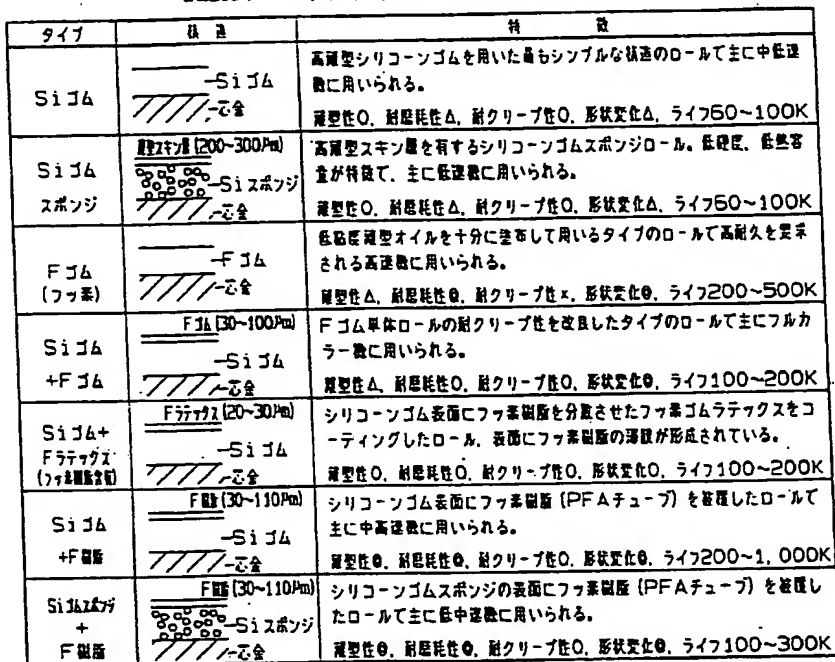 タイプ
構造
特徴
Siゴム
Siゴム
芯金
高離型シリコーンゴムを用いた最もシンプルな構造のロールで主に中低速
機に用いられる。
離型性O、耐磨耗性Δ、耐クリープ性O、形状変化Δ、ライフ60~100K
Siゴム
スポンジ
離型スキン層(200~300μm)
Siスポンジ
芯金
高離型スキン層を有するシリコーンゴムスポンジロール。低硬度、低熱容
量が特徴で、主に低速機に用いられる。
離型性O、耐磨耗性Δ、耐クリープ性O、形状変化Δ、ライフ60~100K
Fゴム
(フッ素)
Fゴム
芯金
低粘度離型オイルを十分に塗布して用いるタイプのロールで高耐久を要求
される高速機に用いられる。
離型性Δ、耐磨耗性◎、耐クリープ性x、形状変化◎、ライフ200~500K
Siゴム
+Fゴム
Fゴム(30~100μm)
Siゴム
芯金
Fゴム単体ロールの耐クリープ性を改良したタイプのロールで主にフルカ
ラー機に用いられる。
離型性Δ、耐磨耗性O、耐クリープ性O、形状変化◎、ライフ100~200K
Siゴム+
Fラテックス
(フッ素樹脂含有)
Fラテックス(20~30μm)
Siゴム
芯金
シリコーンゴム表面にフッ素樹脂を分散させたフッ素ゴムラテックスをコ
ーティングしたロール、表面にフッ素樹脂の薄膜が形成されている。
離型性O、耐磨耗性O、耐クリープ性O、形状変化O、ライフ100~200K
Siゴム
+F樹脂
F樹脂(30~110μm)
Siゴム
芯金
シリコーンゴム表面にフッ素樹脂(PFAチューブ)を被覆したロールで
主に中高速機に用いられる。
離型性◎、耐磨耗性◎、耐クリープ性O、形状変化◎、ライフ200~1,000K
Siゴムスポンジ
+
F樹脂
F樹脂(30~110μm)
Siスポンジ
芯金
シリコーンゴムスポンジの表面にフッ素樹脂(PFAチューブ)を被覆し
たロールで主に低中速機に用いられる。
離型性◎、耐磨耗性◎、耐クリープ性O、形状変化◎、ライフ100~300K